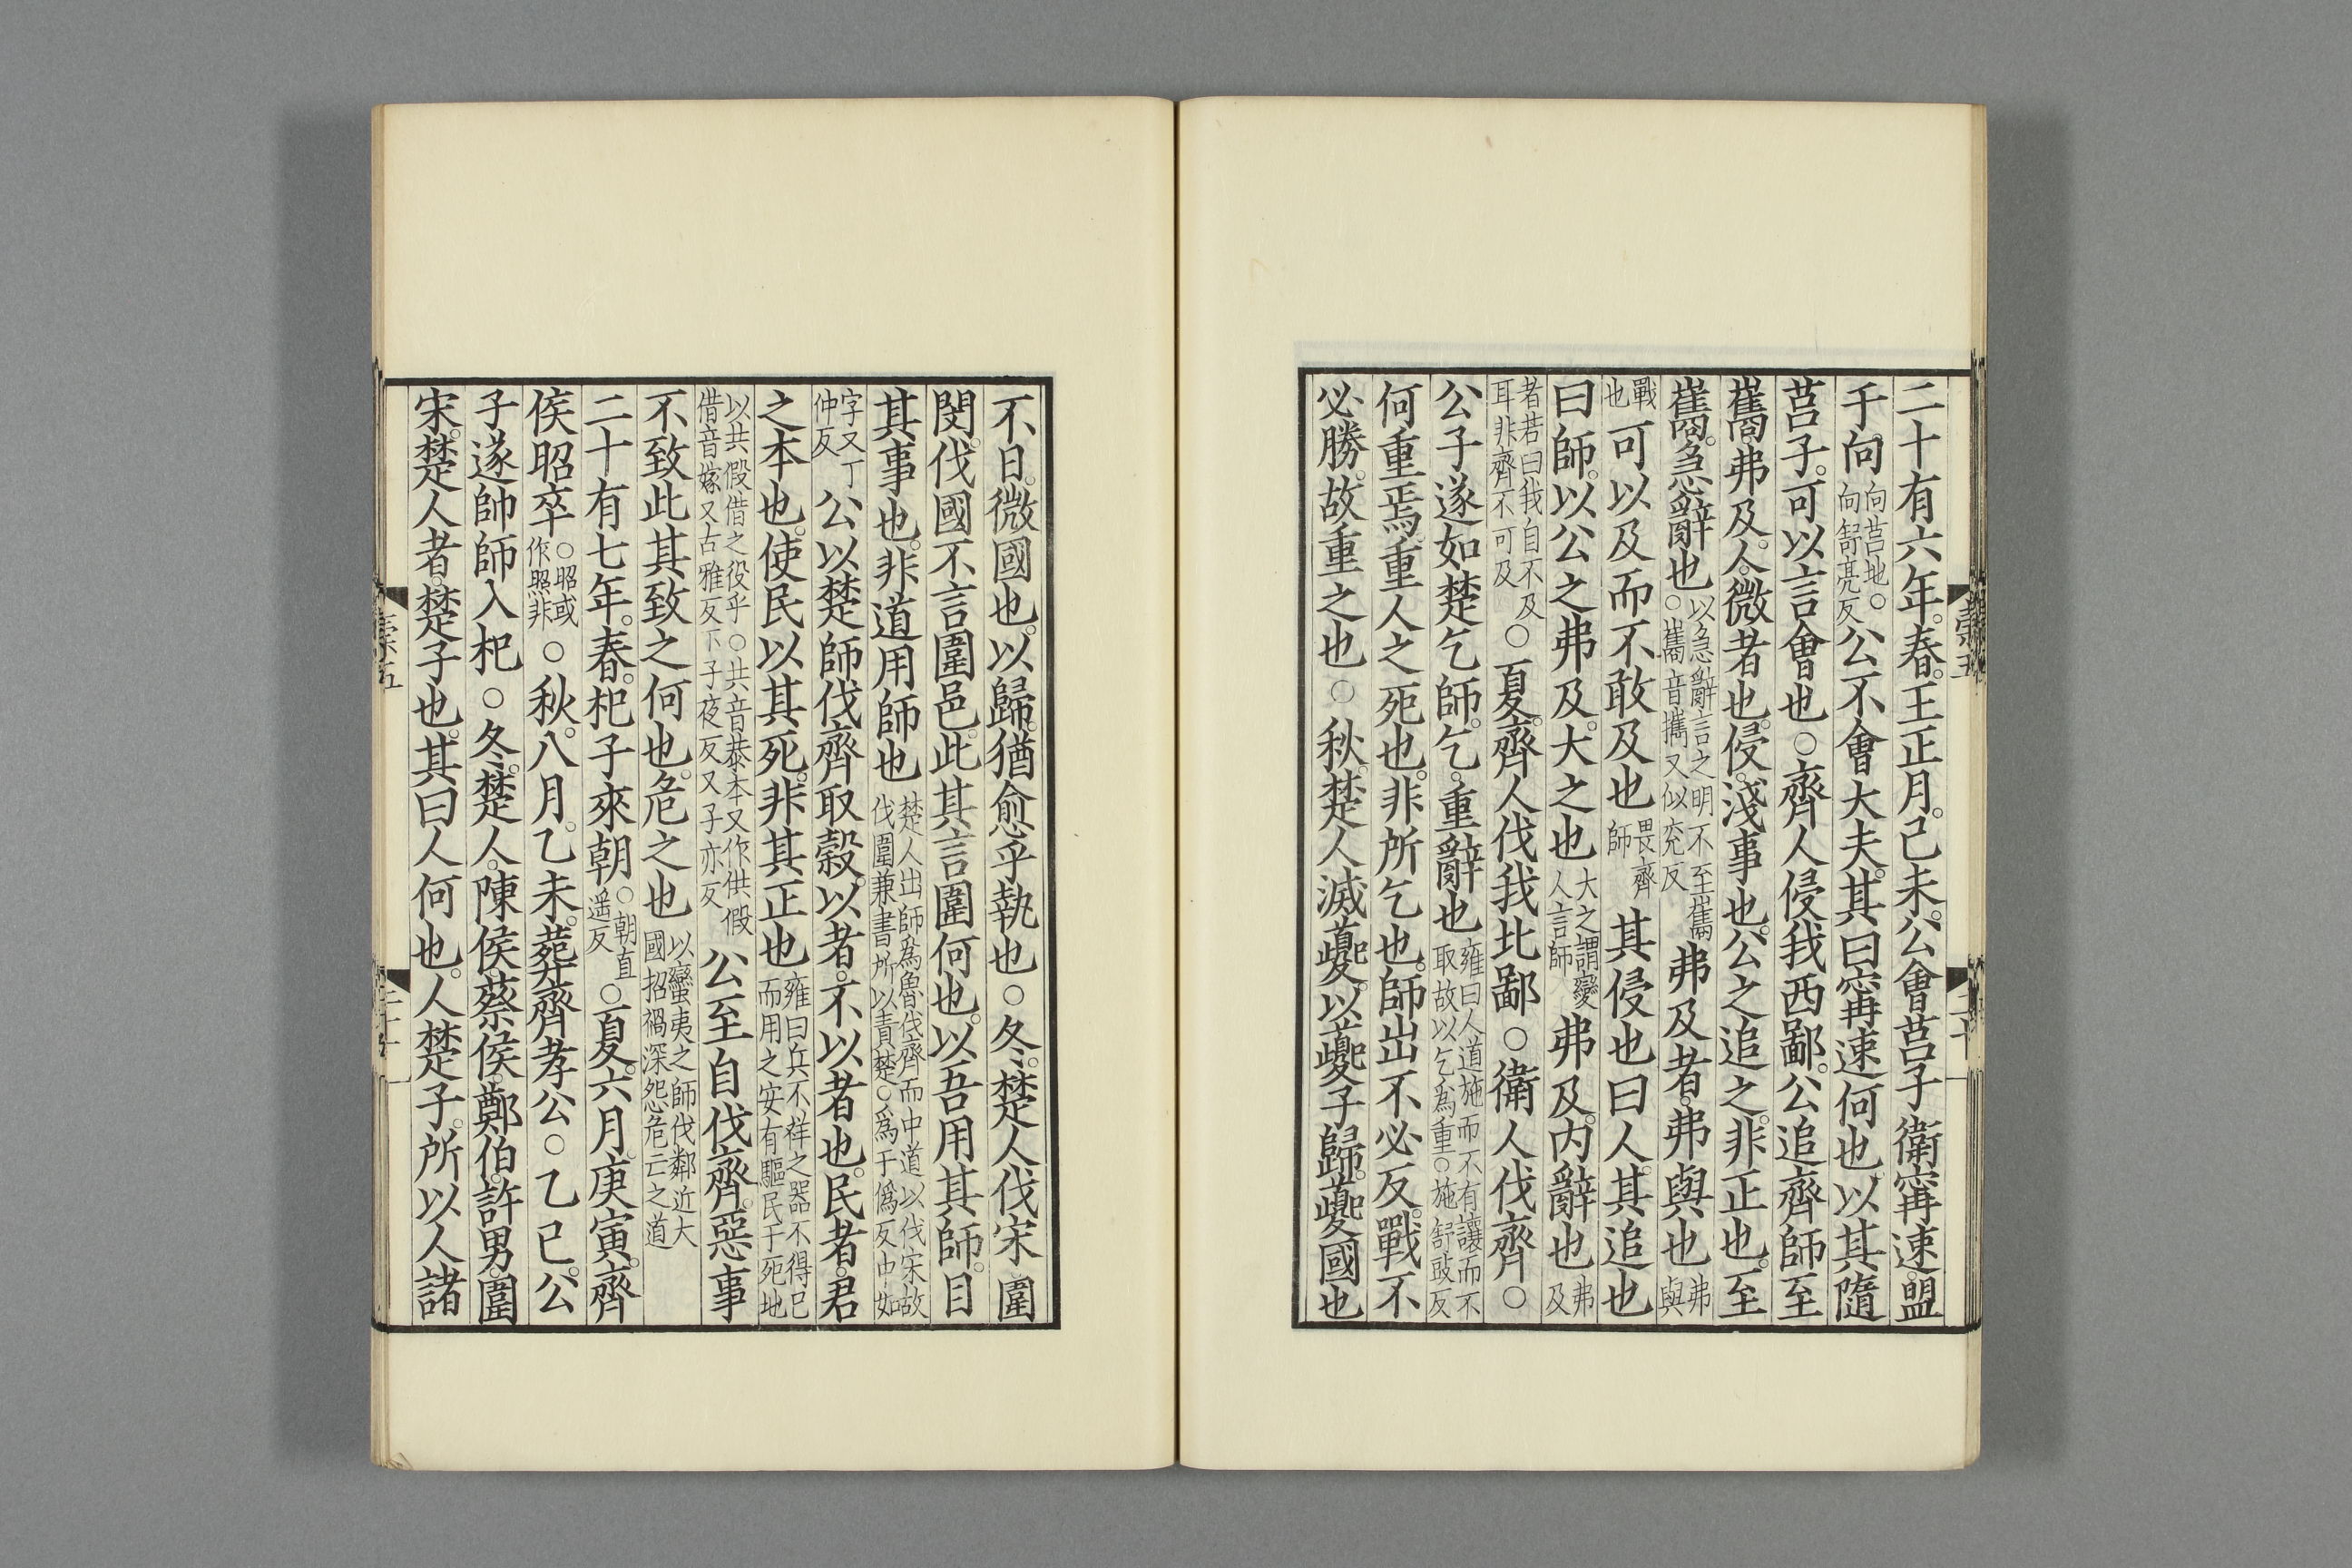 二十有六年。春。王正月。己未。公會莒子衛甯速。盟
于向向莒地。○向舒亮反公不會大夫。其曰甯速何也。以其隨
莒子。可以言會也○齊人侵我西鄙。公追齊師至
巂弗及。人。微者也。侵。淺事也。公之追之。非正也。至
巂。急辭也以急辭言之明不至巂○巂音攜又似兖反弗及者。弗與也弗與
戰也可以及而不敢及也畏齊師其侵也曰人。其追也
曰師。以公之弗及。大之也大之謂變人言師弗及。内辭也弗及
者若曰我自不及耳非齊不可及○夏。齊人伐我北鄙○衛人伐齊○
公子遂如楚乞師。乞。重辭也雍曰人道施而不有讓而不取故以乞爲重○施舒豉反
何重焉。重人之死也。非所乞也。師出不必反。戰不
必勝。故重之也○秋。楚人滅夔。以夔子歸。夔國也
不日。微國也。以歸。猶愈乎執也○冬。楚人伐宋圍
閔。伐國不言圍邑。此其言圍何也。以吾用其師。目
其事也。非道用師也楚人出師爲魯伐齊而中道以伐宋故伐圍兼書所以責楚○爲于僞反中如
字又丁仲反公以楚師伐齊取穀。以者。不以者也。民者。君
之本也。使民以其死。非其正也雍曰兵不祥之器不得已而用之安有驅民于死地
以共假借之役乎○共音恭本又作供假借音嫁又古雅反下子夜反又子亦反公至自伐齊。惡事
不致此其致之何也。危之也以蠻夷之師伐鄰近大國招禍深怨危亡之道
二十有七年。春。杞子來朝○朝直遥反○夏。六月。庚寅。齊
侯昭卒○昭或作照非○秋。八月。乙未。葬齊孝公○乙巳。公
子遂帥師入杞○冬。楚人。陳侯蔡侯。鄭伯。許男。圍
宋。楚人者。楚子也。其曰人何也。人楚子。所以人諸